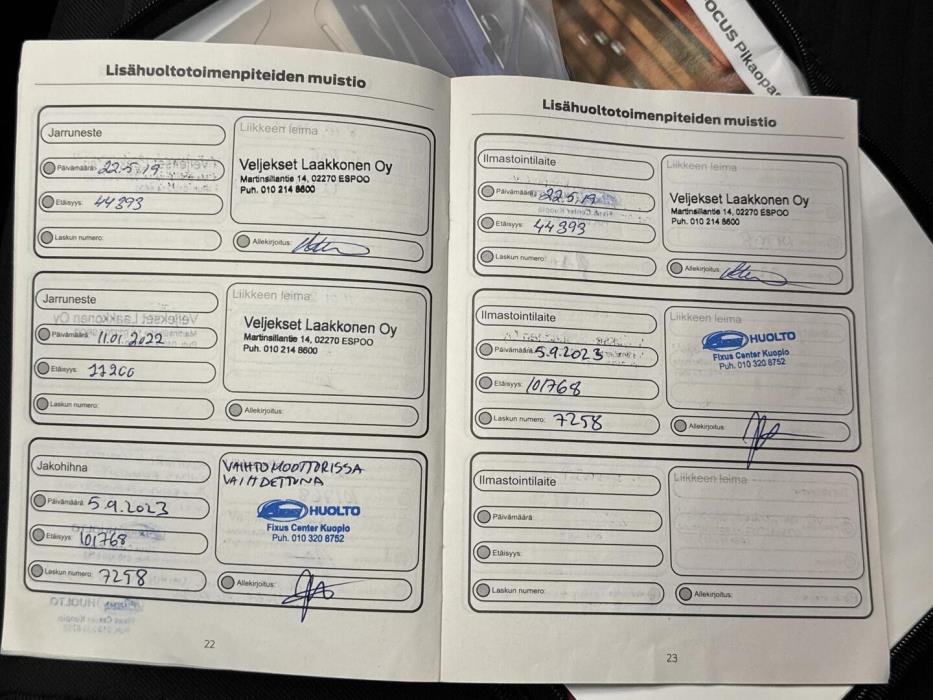 OCUS Pikaopas
Lisähuoltotoimenpiteiden muistio
Jarruneste
Päivämäärä: 22.5.19
Etäisyys: 44393
Laskun numero:
Liikkeen leima
Veljekset Laakkonen Oy
Martinsillantie 14, 02270 ESPOO
Puh. 010 214 8600
Allekirjoitus:
Jarruneste
Päivämäärä: 11.01.2022
Etäisyys:
Laskun numero:
Liikkeen leima
Veljekset Laakkonen Oy
Martinsillantie 14, 02270 ESPOO
Puh. 010 214 8600
Allekirjoitus:
Jakohihna
Päivämäärä: 5.9.2023
Etäisyys: 101768
Laskun numero: 7258
VAIHTOMOOTTORISSA
VAIHDETTUNA
HUOLTO
Fixus Center Kuopio
Puh. 010 320 8752
Allekirjoitus:
22
Lisähuoltotoimenpiteiden muistio
Ilmastointilaite
Päivämäärä: 22.5.19
Etäisyys: 44393
Laskun numero:
Liikkeen leima
Veljekset Laakkonen Oy
Martinsillantie 14, 02270 ESPOO
Puh. 010 214 8600
Allekirjoitus:
Ilmastointilaite
Päivämäärä: 5.9.2023
Etäisyys: 101768
Laskun numero: 7258
Liikkeen leima
HUOLTO
Fixus Center Kuopio
Puh. 010 320 8752
Allekirjoitus:
Ilmastointilaite
Päivämäärä:
Etäisyys:
Laskun numero:
Liikkeen leima
Allekirjoitus:
23